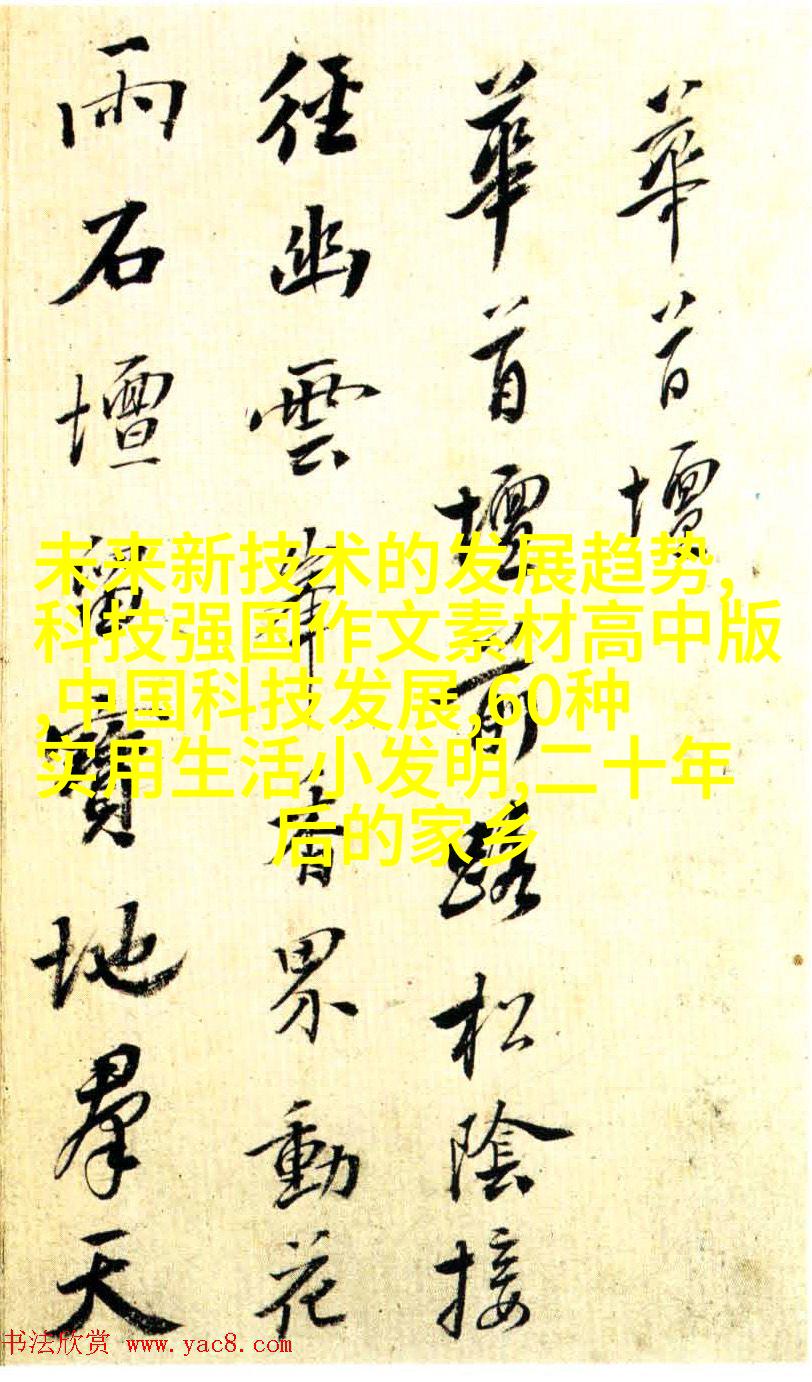 華首壇
華首壇前路松陰接
徑幽雲峯香界動花
雨石壇留寶地羣天
未来新技术的发展趋势,
科技强国作文素材高中版
,中国科技发展,60种
实用生活小发明,二十年
后的家乡
书法欣赏 www.yac8.com